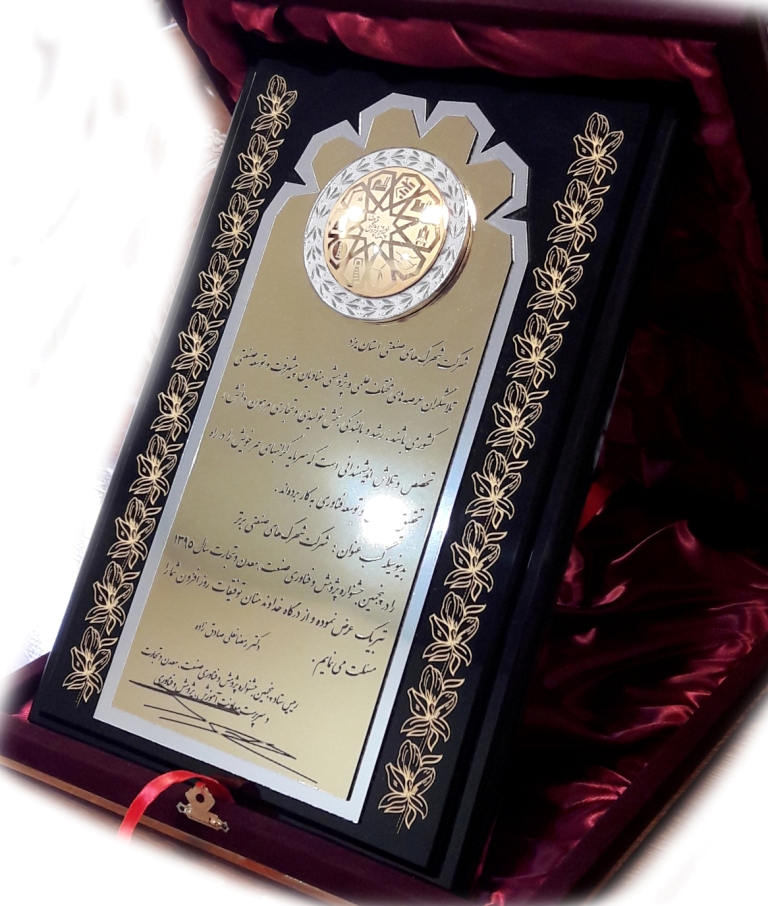 شرکت شهرک های صنعتی استان یزد
تلاشگران عرصه های مختلف علمی و پژوهشی منادیان پیشرفت و توسعه صنعتی
کشوری باشند، رشد و بالندگی بخش تولیدی و تجاری مرهون دانش،
تخصص و تلاش اندیشمندانی است که سرمایه گرانبهای عمر خویش را در راه
تحقیق و توسعه فناوری به کار برده اند.
بدینوسیله کسب عنوان: شرکت شهرک های صنعتی برتر
را در پنجمین جشنواره پژوهش و فناوری صنعت، معدن و تجارت سال ۱۳۹۵
تبریک عرض نموده و از درگاه خداوند منان توفیقات روز افزون شما را
مسئلت می نمایم.
دکتر رضاعلی صادق زاده
رئیس ستاد پنجمین جشنواره پژوهش و فناوری صنعت، معدن و تجارت
و سرپرست معاونت آموزش، پژوهش و فناوری